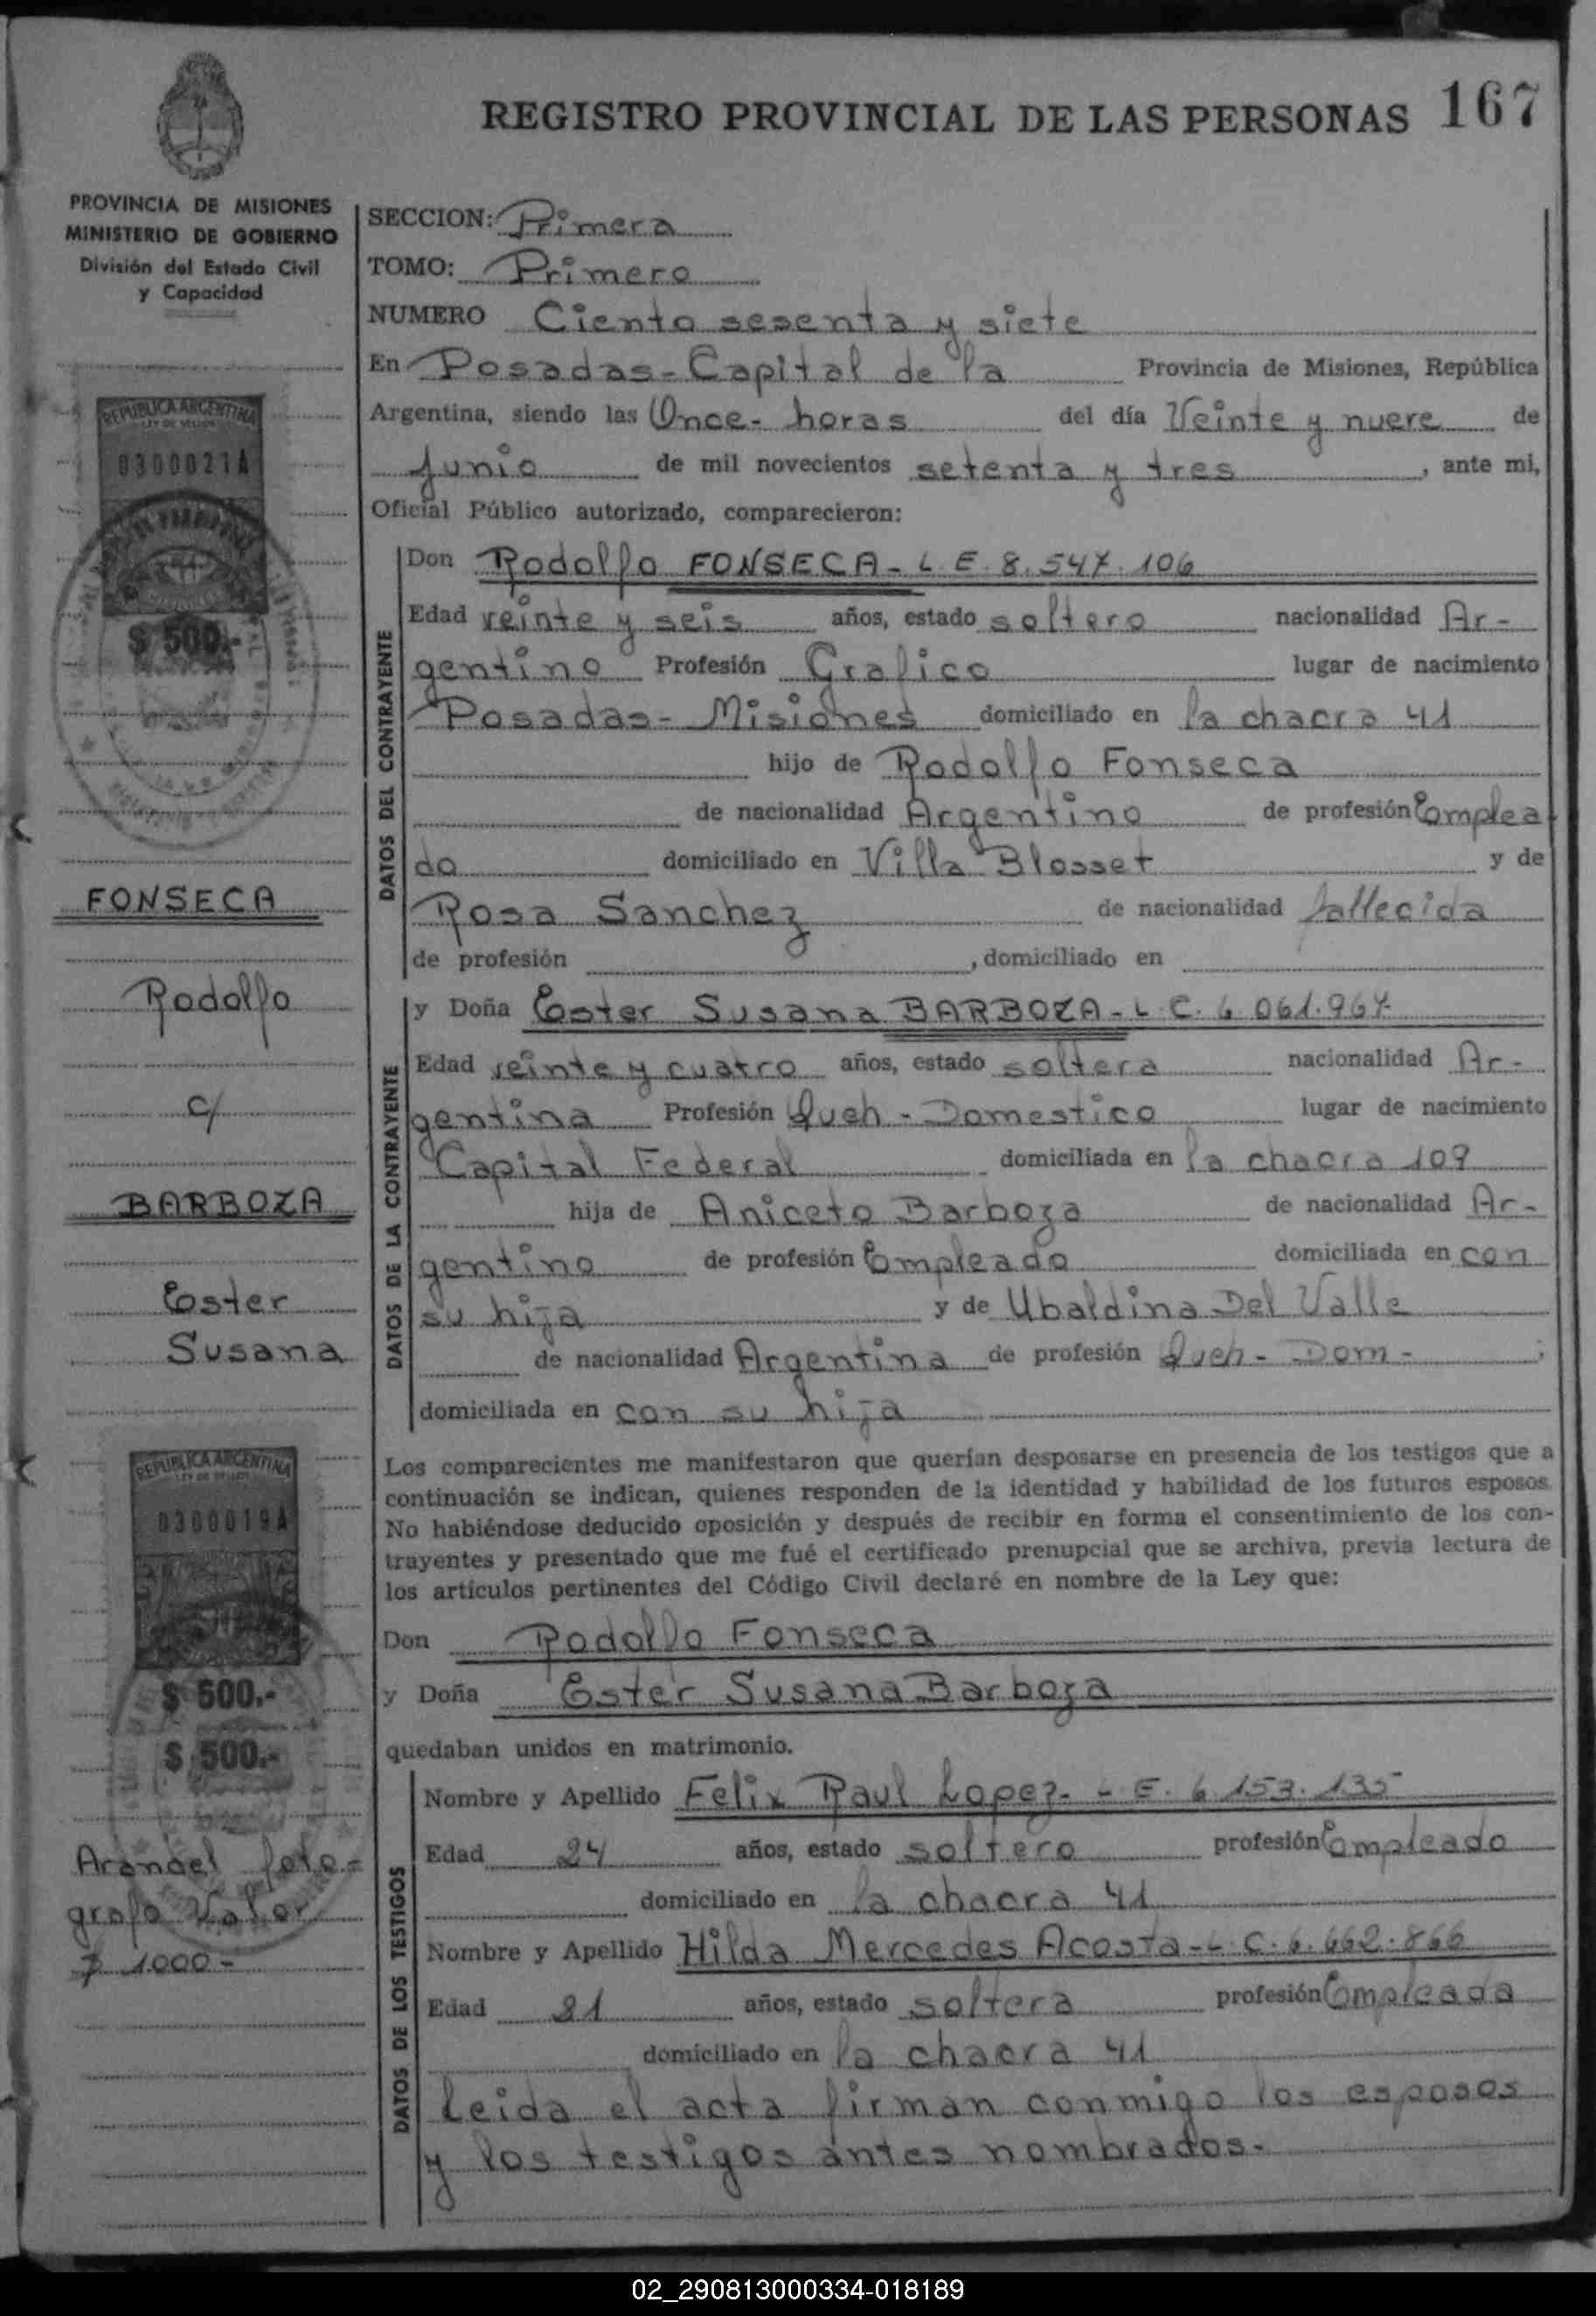 REGISTRO PROVINCIAL DE LAS PERSONAS 167
PROVINCIA DE MISIONES
MINISTERIO DE GOBIERNO
División del Estado Civil
y Capacidad
SECCION: Primera
TOMO: Primero
NUMERO Ciento sesenta y siete
En Posadas - Capital de la Provincia de Misiones, República
Argentina, siendo las Once - horas del día Veinte y nueve de
Junio de mil novecientos setenta y tres, ante mi,
Oficial Público autorizado, comparecieron:
DATOS DEL CONTRAYENTE
Don Rodolfo FONSECA - L. E. 8.547.106
Edad veinte y seis años, estado soltero nacionalidad Ar-
gentino Profesión Grafico lugar de nacimiento
Posadas - Misiones domiciliado en la chacra 41
hijo de Rodolfo Fonseca
de nacionalidad Argentino de profesión Emplea
do domiciliado en Villa Blosset y de
Rosa Sanchez de nacionalidad fallecida
de profesión , domiciliado en
DATOS DE LA CONTRAYENTE
y Doña Ester Susana BARBOZA - L. C. 6 061.967
Edad veinte y cuatro años, estado soltera nacionalidad Ar-
gentina Profesión Queh - Domestico lugar de nacimiento
Capital Federal domiciliada en la chacra 109
hija de Aniceto Barboza de nacionalidad Ar-
gentino de profesión Empleado domiciliada en con
su hija y de Ubaldina Del Valle
de nacionalidad Argentina de profesión Queh - Dom - ;
domiciliada en con su hija
Los comparecientes me manifestaron que querían desposarse en presencia de los testigos que a
continuación se indican, quienes responden de la identidad y habilidad de los futuros esposos.
No habiéndose deducido oposición y después de recibir en forma el consentimiento de los con-
trayentes y presentado que me fué el certificado prenupcial que se archiva, previa lectura de
los artículos pertinentes del Código Civil declaré en nombre de la Ley que:
Don Rodolfo Fonseca
y Doña Ester Susana Barboza
quedaban unidos en matrimonio.
DATOS DE LOS TESTIGOS
Nombre y Apellido Felix Raul Lopez - L E. 6.153.135
Edad 24 años, estado soltero profesión Empleado
domiciliado en la chacra 41
Nombre y Apellido Hilda Mercedes Acosta - L. C. 6.662.866
Edad 21 años, estado soltera profesión Empleada
domiciliado en la chacra 41
Leida el acta firman conmigo los esposos
y los testigos antes nombrados.
REPUBLICA ARGENTINA
LEY DE SELLOS
0300021A
$ 500.-
FONSECA
Rodolfo
c/
BARBOZA
Ester
Susana
REPUBLICA ARGENTINA
LEY DE SELLOS
0300019A
$ 500.-
$ 500.-
Arancel foto-
grafo Valor
$ 1000 -
02_290813000334-018189